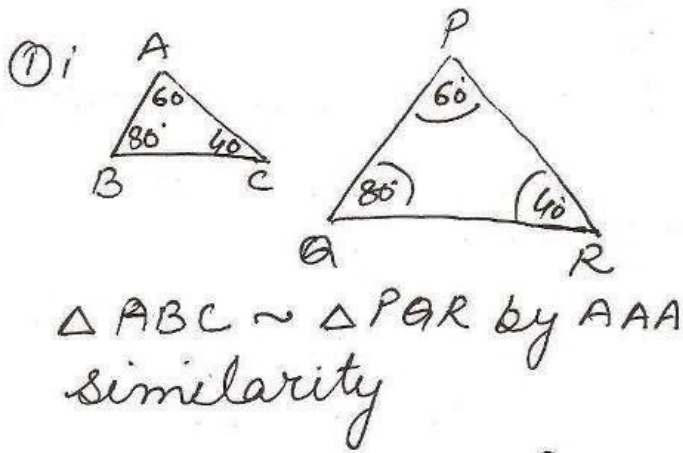 ① i
A
60°
80° 40°
B C
P
60°
80° 40°
Q R
△ ABC ~ △ PQR by AAA
similarity